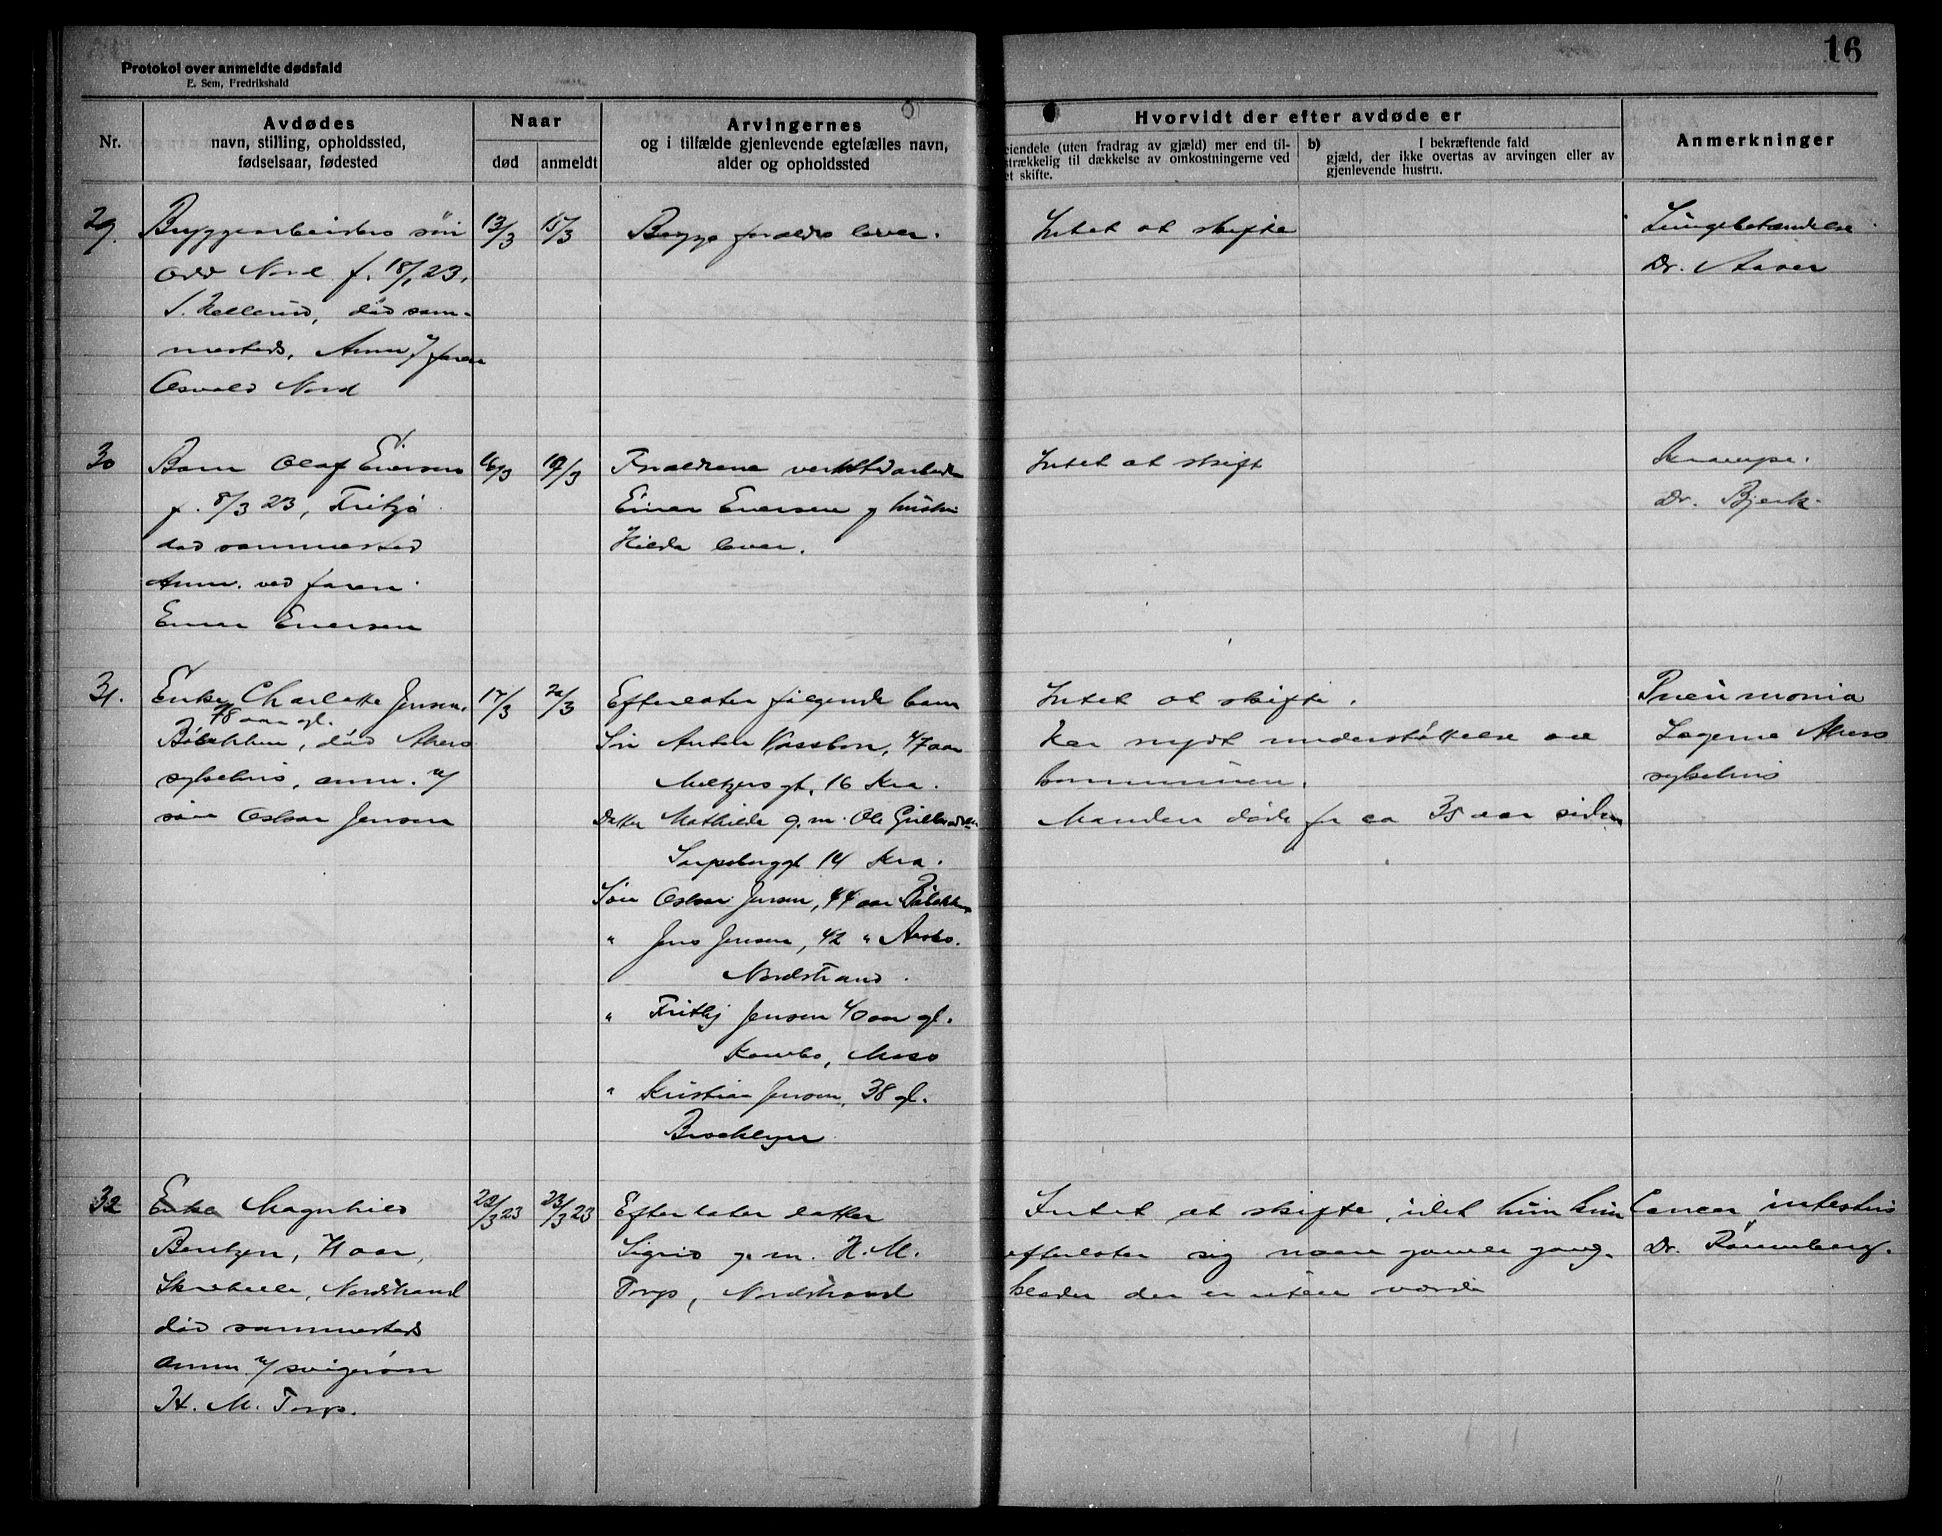 16
Protokol over anmeldte dødsfald
E. Sem, Fredrikshald
Nr.
Avdødes
navn, stilling, opholdssted,
fødselsaar, fødested
Naar
død
anmeldt
Arvingernes
og i tilfælde gjenlevende egtefælles navn,
alder og opholdssted
Hvorvidt der efter avdøde er
eiendele (uten fradrag av gjæld) mer end til-
trækkelig til dækkelse av omkostningerne ved
et skifte.
b) I bekræftende fald
gjæld, der ikke overtas av arvingen eller av
gjenlevende hustru.
Anmerkninger
29.
Bryggearbeiders søn
Odd Nord f. 18/1 23,
død sam-
mesteds, Anm. v/ faren
Osvald Nord
13/3
15/3
Begge forældre lever.
Intet at skifte
Lungebetændelse
Dr.
30
Barn Olaf Evensen
f. 8/3 23,
død sammested
Anm. ved faren
Einar Evensen
16/3
19/3
Forældrene verkstedarbeider
Einar Evensen og hustru
Hilda lever.
Intet at skift
Krampe.
Dr. Bjerk
31.
Enke Charlotte Jensen,
78 aar gl.
Bålerkken, død Akers
sykehus, anm. v/
søn Oskar Jensen
17/3
20/3
Efterlater følgende barn
Søn Anton Vassbon, 47 aar
Meltzers gt. 16 Kra.
Datter Mathilde g. m. Ole Gulbrandsen
Sarpsborggt 14 Kra.
Søn Oskar Jensen, 44 aar
" Jens Jensen, 42 "
Nordstrand.
" Frithj Jensen 40 aar gl.
Kambo, Moss
" Kristian Jensen, 38 gl.
Brooklyn
Intet at skifte.
Har nydt understøttelse av
kommunen.
Manden døde for ca 35 aar siden
Pneumonia
Lægerne Akers
sykehus
32
Enke Magnhild
Bentzen,
Nordstrand
død sammesteds
anm v/ svigersøn
H. M. Torp.
22/3 23
23/3 23
Efterlater datter
Sigrid g. m. H. M.
Torp, Nordstrand
Intet at skifte, idet hun kun
efterlater sig noen gamle gang-
klæder der er uten værdi
Cancer intestinis
Dr. Rønneberg.